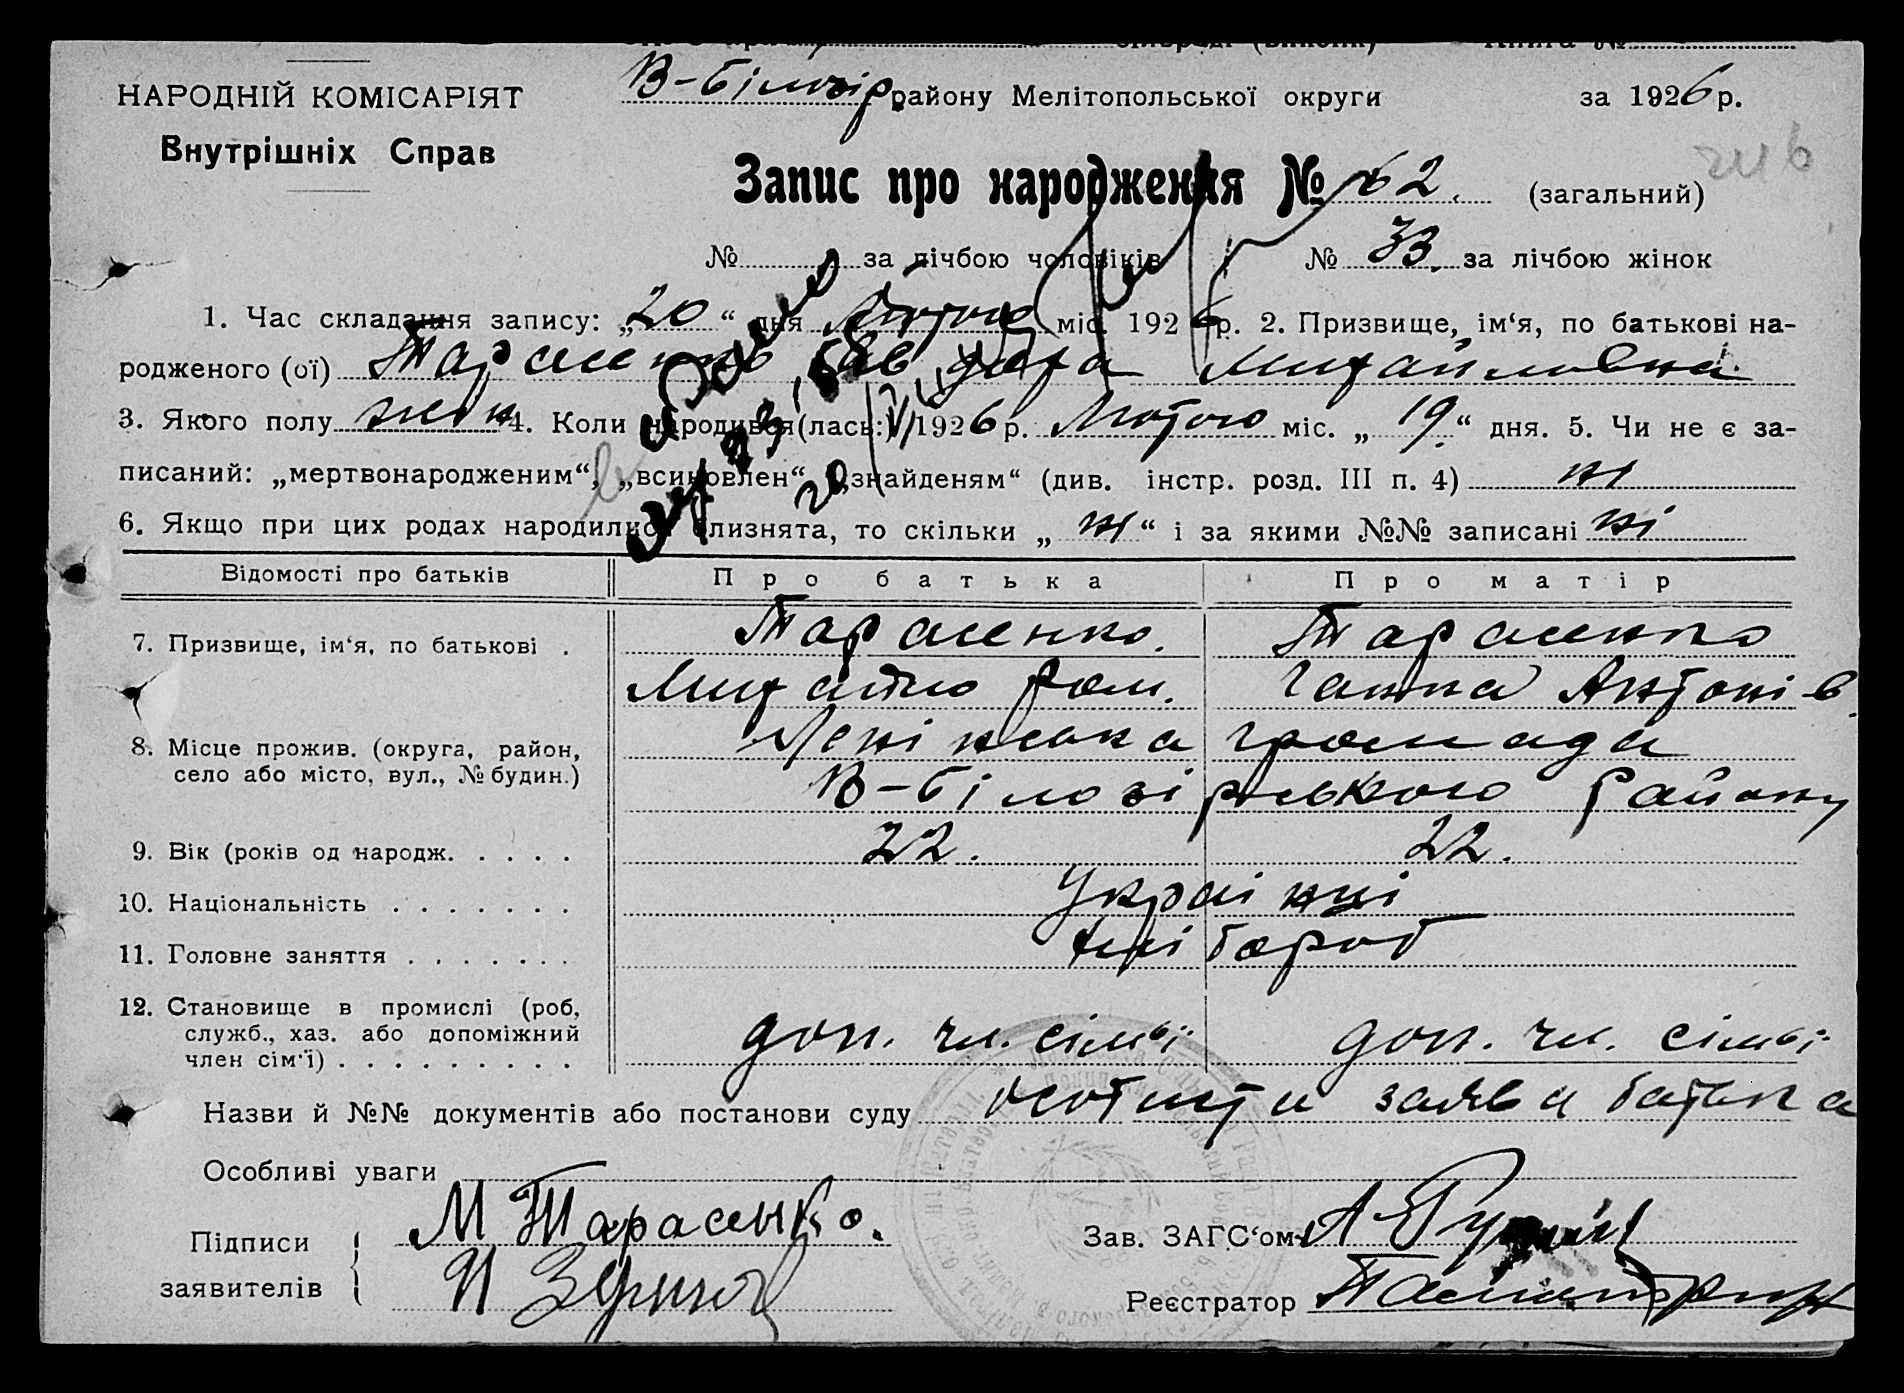 НАРОДНІЙ КОМІСАРІЯТ
Внутрішніх Справ
В-Білозір району Мелітопольської округи за 1926 р.
Запис про народження № 62. (загальний)
№ за лічбою чоловіків № 33. за лічбою жінок
1. Час складання запису: „20“ дня Лютого міс. 1926 р. 2. Призвище, ім‘я, по батькові на-
родженого (ої) Тарасенко Михайловна
3. Якого полу жін 4. Коли народився (лась:) 1926 р. Лютого міс. „19“ дня. 5. Чи не є за-
писаний: „мертвонародженим“, „всиновлен“, „знайденям“ (див. інстр. розд. III п. 4) ні
6. Якщо при цих родах народилися близнята, то скільки „ні“ і за якими №№ записані ні
Відомості про батьків Про батька Про матір
7. Призвище, ім‘я, по батькові . Тарасенко. Тарасенко
Михайло Ром. Ганна Антонів
8. Місце прожив. (округа, район, Ленінська громада
село або місто, вул., № будин.) В-Білозірського району
9. Вік (років од народж. . . . . 22. 22.
10. Національність . . . . . . . Українці
11. Головне заняття . . . . . . . хлібороб
12. Становище в промислі (роб, служб., хаз. або допоміжний член сім‘ї) . . . . . . . . . доп. чл. сімьї доп. чл. сімьї
Назви й №№ документів або постанови суду заява батька
Особливі уваги
Підписи М Тарасенко.
заявителів
Зав. ЗАГС‘ом
Реєстратор